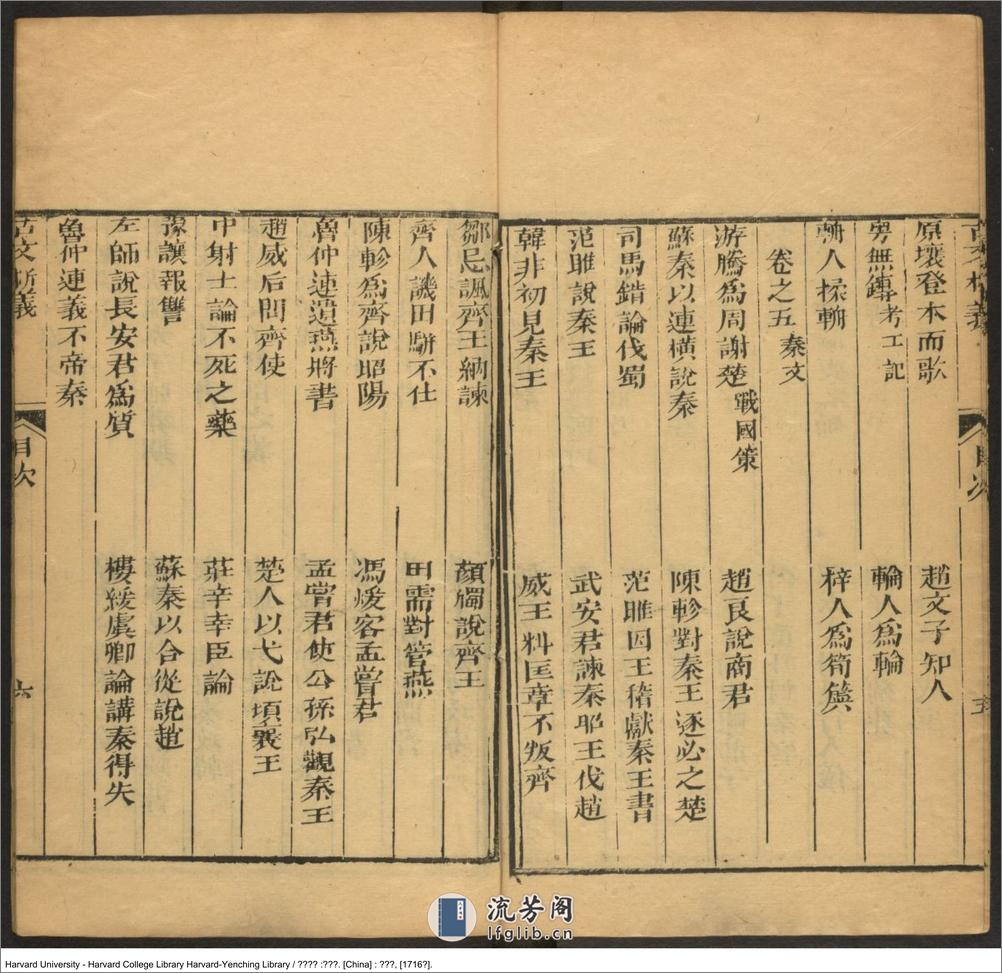 古文析義
原壤登木而歌
趙文子知人
粤無鎛考工記
輪人爲輪
輈人揉輈
梓人爲筍簴
卷之五 秦文
游騰爲周謝楚戰國策
趙良說商君
蘇秦以連橫說秦
陳軫對秦王逐必之楚
司馬錯論伐蜀
范雎因王稽獻秦王書
范雎說秦王
武安君諫秦昭王伐趙
韓非初見秦王
威王料匡章不叛齊
目次
五
鄒忌諷齊王納諫
顏斶說齊王
齊人譏田駢不仕
田需對管燕
陳軫爲齊說昭陽
馮煖客孟嘗君
魯仲連遺燕將書
孟嘗君使公孫弘觀秦王
趙威后問齊使
楚人以弋說頃襄王
中射士論不死之藥
莊辛幸臣論
豫讓報讐
蘇秦以合從說趙
左師說長安君爲質
樓緩虞卿論講秦得失
魯仲連義不帝秦
古文析義
目次
六
流芳阁
lfglib.cn
Harvard University - Harvard College Library Harvard-Yenching Library / ???? :???. [China] : ???, [1716?].